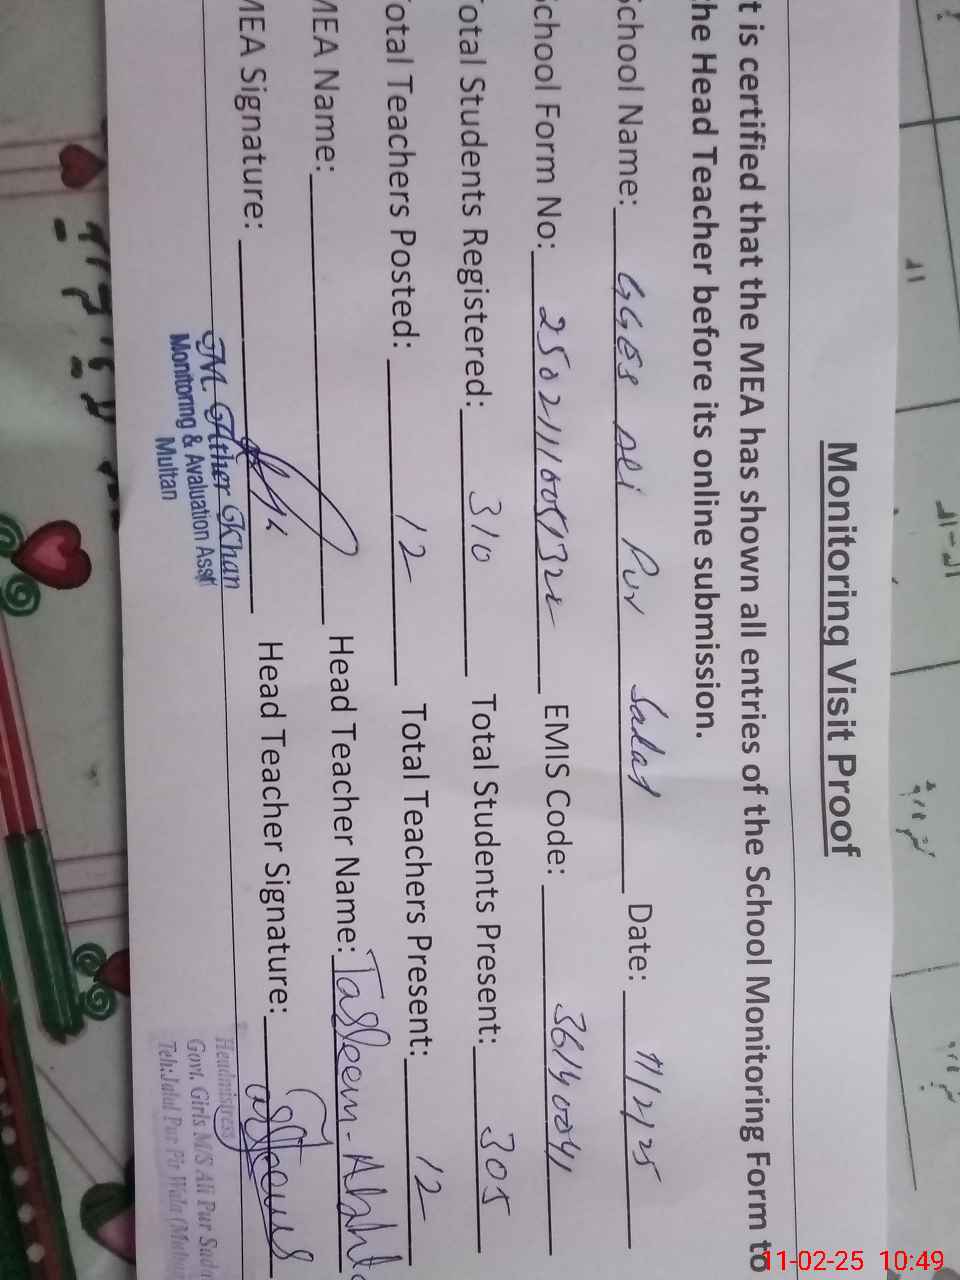 Monitoring Visit Proof
t is certified that the MEA has shown all entries of the School Monitoring Form to
he Head Teacher before its online submission.
chool Name: GGES Ali Pur Sadat Date: 11/2/25
chool Form No: EMIS Code: 36140041
otal Students Registered: 310 Total Students Present: 305
otal Teachers Posted: 12 Total Teachers Present: 12
MEA Name: Head Teacher Name: Tasleem-
MEA Signature: Head Teacher Signature:
M. Ather Khan
Monitoring & Avaluation Asstt
Multan
Headmistress
Govt. Girls M/S Ali Pur Sada
Teh: Jalal Pur Pir Wala (Multan
11-02-25 10:49